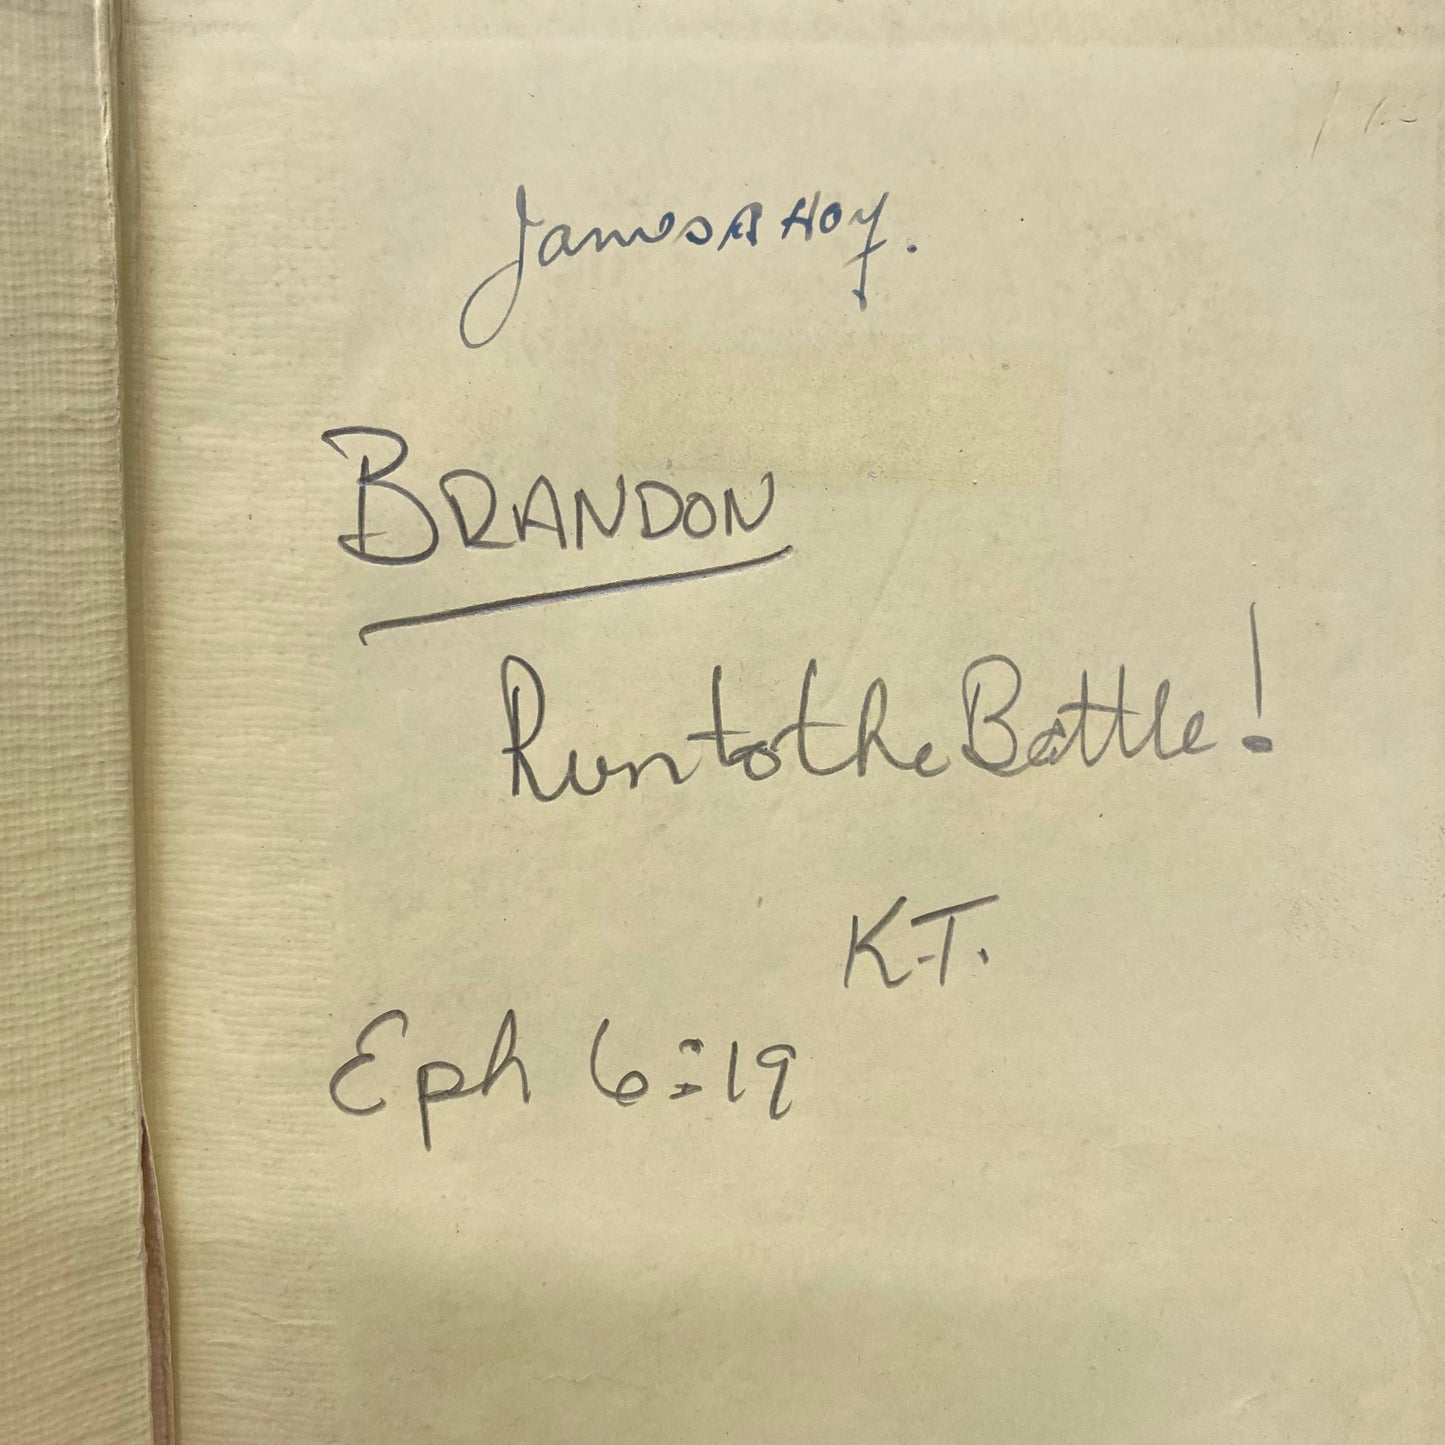 James A Hoy.
BRANDON
Run to the Battle!
K.T.
Eph 6:19